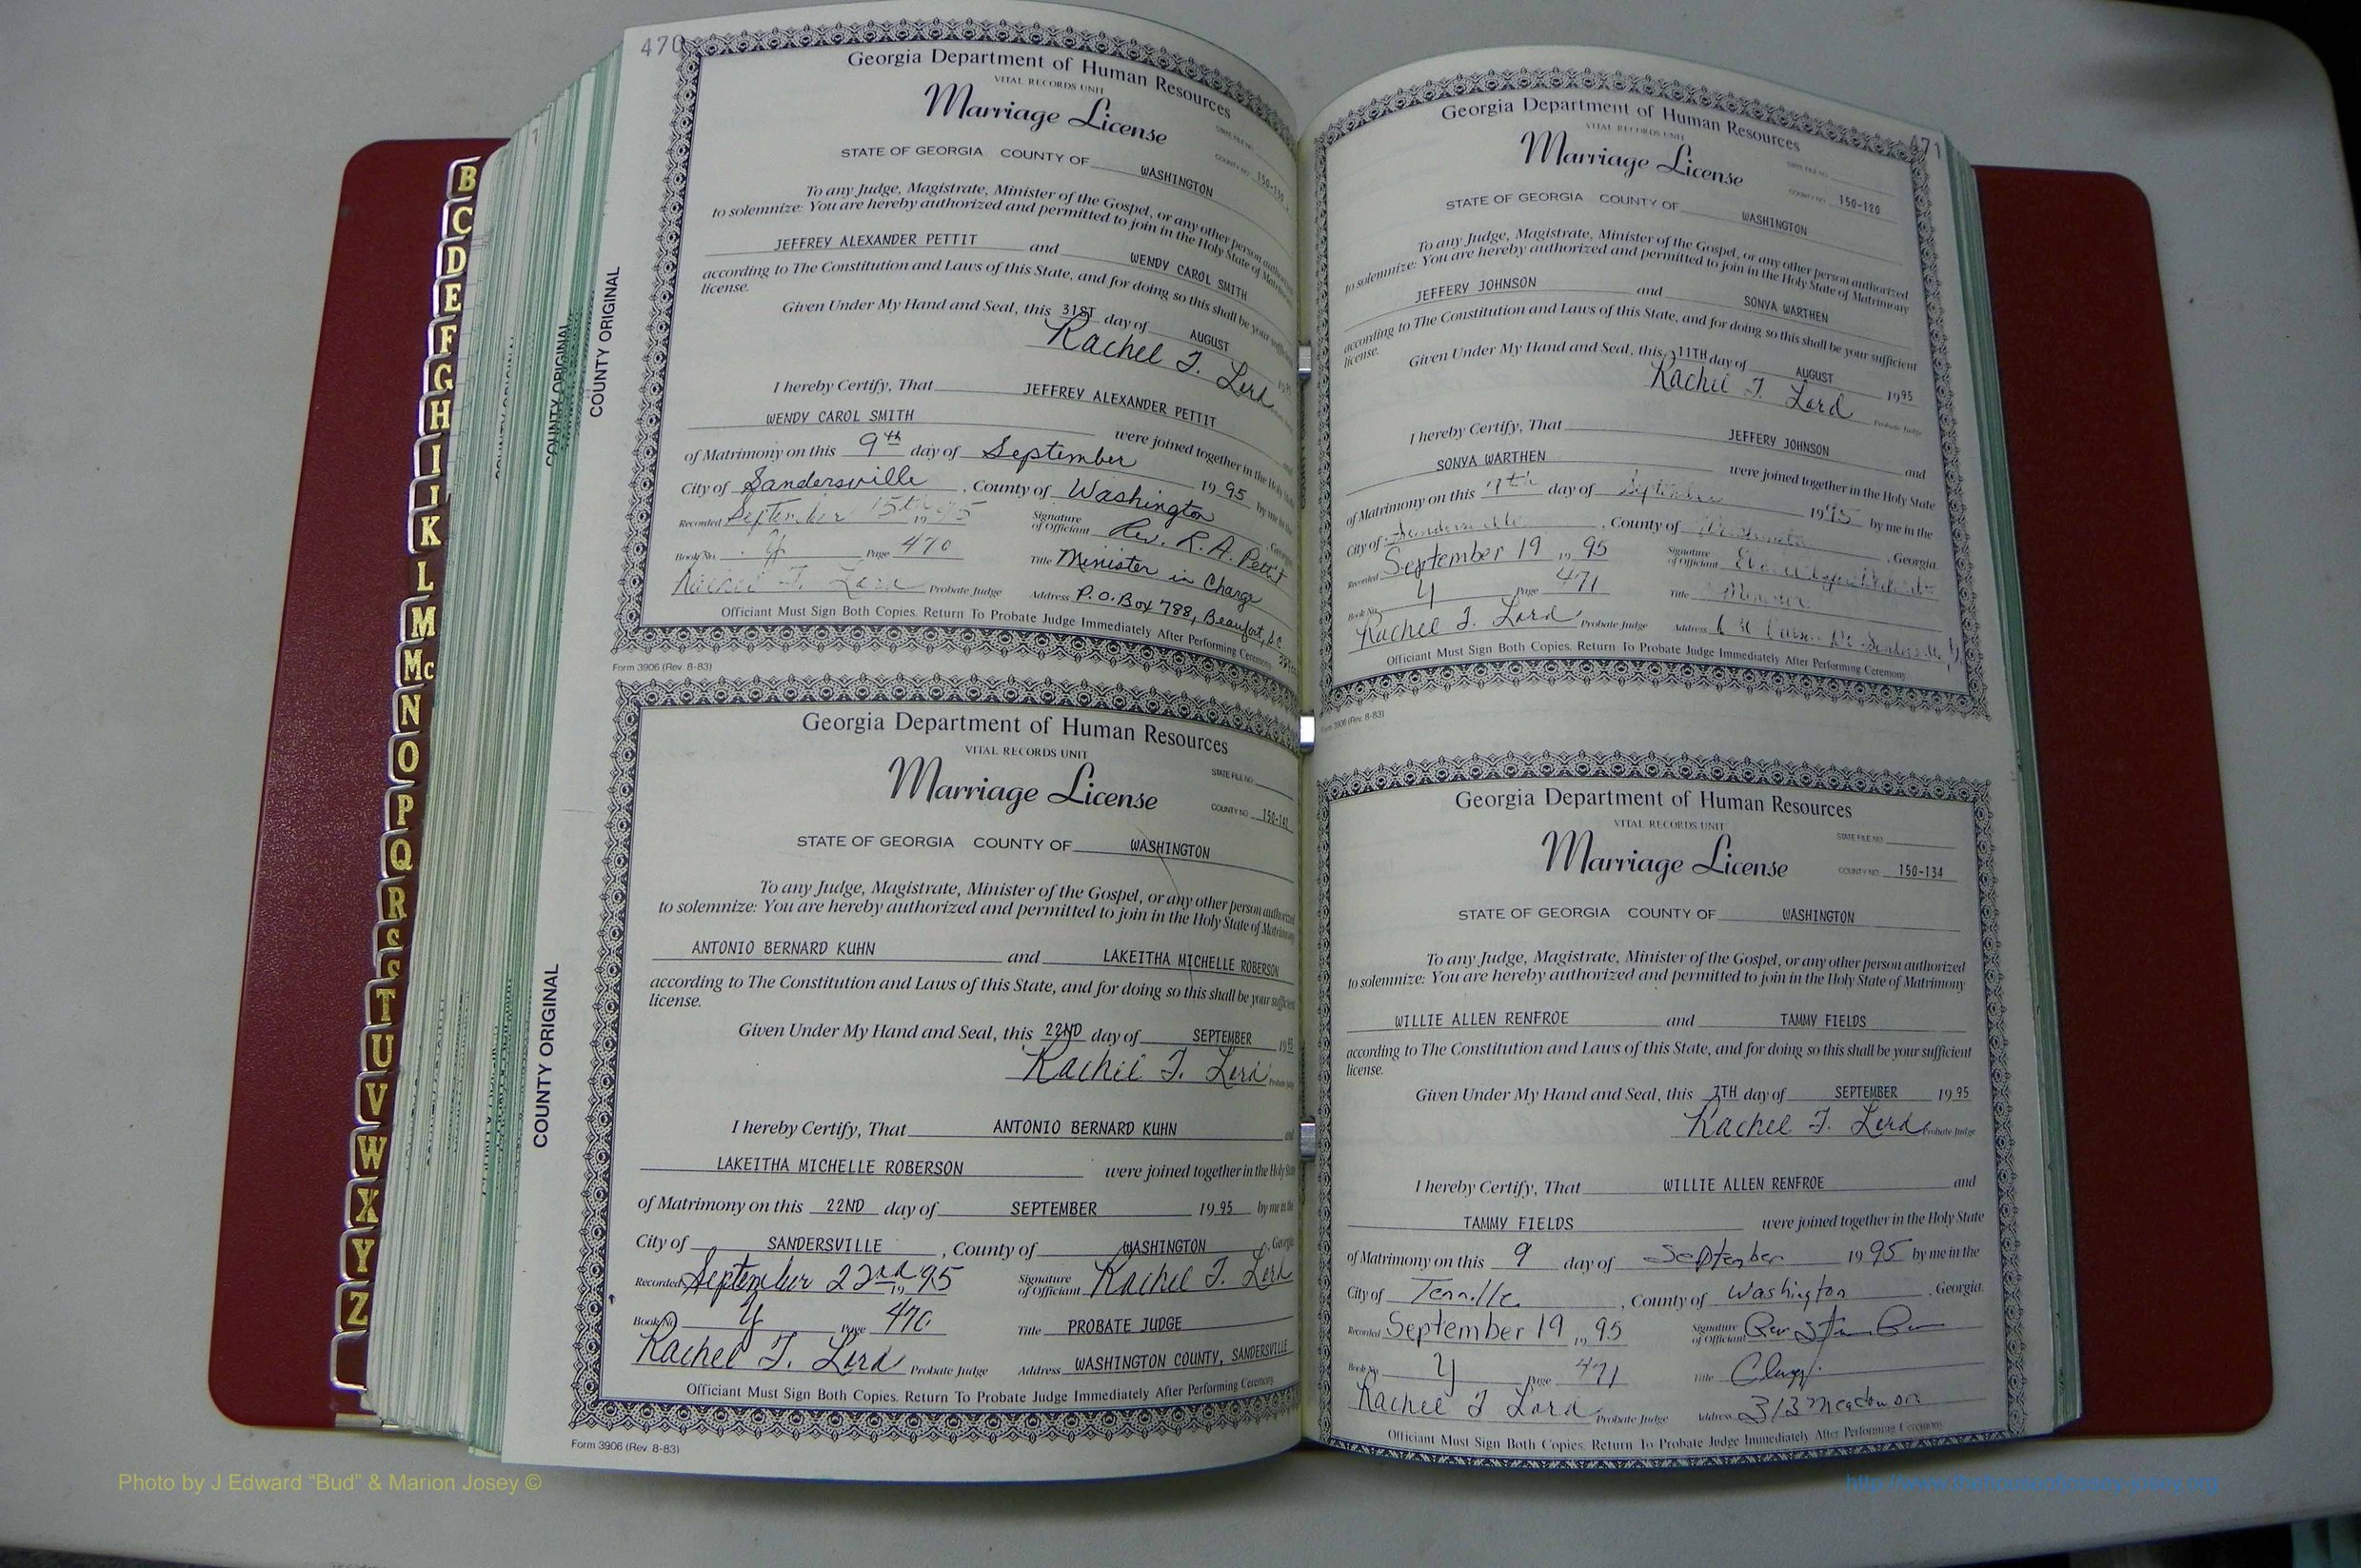 B
C
D
E
F
G
H
I
J
K
L
M
Mc
N
O
P
Q
R
S
T
U
V
W
X
Y
Z
COUNTY ORIGINAL
COUNTY ORIGINAL
COUNTY ORIGINAL
470
Georgia Department of Human Resources
VITAL RECORDS UNIT
Marriage License
STATE FILE NO.
COUNTY NO. 150-130
STATE OF GEORGIA COUNTY OF WASHINGTON
To any Judge, Magistrate, Minister of the Gospel, or any other person authorized
to solemnize: You are hereby authorized and permitted to join in the Holy State of Matrimony
JEFFREY ALEXANDER PETTIT and WENDY CAROL SMITH
according to The Constitution and Laws of this State, and for doing so this shall be your sufficient
license.
Given Under My Hand and Seal, this 31ST day of AUGUST
Rachel T. Lord
I hereby Certify, That JEFFREY ALEXANDER PETTIT
WENDY CAROL SMITH were joined together in the Holy State
of Matrimony on this 9th day of September 19 95 by me in the
City of Sandersville, County of Washington, Georgia
Recorded September 15th 19 95 Signature of Officiant Rev. R. A. Pettit
Book No. Y Page 470 Title Minister in Charge
Rachel T. Lord Probate Judge Address P.O. Box 788, Beaufort, SC
Officiant Must Sign Both Copies. Return To Probate Judge Immediately After Performing Ceremony
Form 3906 (Rev. 8-83)
Georgia Department of Human Resources
VITAL RECORDS UNIT
Marriage License
STATE FILE NO.
COUNTY NO. 150-141
STATE OF GEORGIA COUNTY OF WASHINGTON
To any Judge, Magistrate, Minister of the Gospel, or any other person authorized
to solemnize: You are hereby authorized and permitted to join in the Holy State of Matrimony
ANTONIO BERNARD KUHN and LAKEITHA MICHELLE ROBERSON
according to The Constitution and Laws of this State, and for doing so this shall be your sufficient
license.
Given Under My Hand and Seal, this 22ND day of SEPTEMBER 19 95
Rachel T. Lord Probate Judge
I hereby Certify, That ANTONIO BERNARD KUHN and
LAKEITHA MICHELLE ROBERSON were joined together in the Holy State
of Matrimony on this 22ND day of SEPTEMBER 19 95 by me in the
City of SANDERSVILLE, County of WASHINGTON, Georgia
Recorded September 22nd 19 95 Signature of Officiant Rachel T. Lord
Book No. Y Page 470 Title PROBATE JUDGE
Rachel T. Lord Probate Judge Address WASHINGTON COUNTY, SANDERSVILLE
Officiant Must Sign Both Copies. Return To Probate Judge Immediately After Performing Ceremony
Form 3906 (Rev. 8-83)
471
Georgia Department of Human Resources
VITAL RECORDS UNIT
Marriage License
STATE FILE NO.
COUNTY NO. 150-120
STATE OF GEORGIA COUNTY OF WASHINGTON
To any Judge, Magistrate, Minister of the Gospel, or any other person authorized
to solemnize: You are hereby authorized and permitted to join in the Holy State of Matrimony
JEFFERY JOHNSON and SONYA WARTHEN
according to The Constitution and Laws of this State, and for doing so this shall be your sufficient
license.
Given Under My Hand and Seal, this 11TH day of AUGUST 19 95
Rachel T. Lord Probate Judge
I hereby Certify, That JEFFERY JOHNSON and
SONYA WARTHEN were joined together in the Holy State
of Matrimony on this day of September 19 95 by me in the
City of Sandersville, County of Washington, Georgia
Recorded September 19 19 95 Signature of Officiant
Book No. Y Page 471 Title Minister
Rachel T. Lord Probate Judge Address
Officiant Must Sign Both Copies. Return To Probate Judge Immediately After Performing Ceremony
Form 3906 (Rev. 8-83)
Georgia Department of Human Resources
VITAL RECORDS UNIT
Marriage License
STATE FILE NO.
COUNTY NO. 150-134
STATE OF GEORGIA COUNTY OF WASHINGTON
To any Judge, Magistrate, Minister of the Gospel, or any other person authorized
to solemnize: You are hereby authorized and permitted to join in the Holy State of Matrimony
WILLIE ALLEN RENFROE and TAMMY FIELDS
according to The Constitution and Laws of this State, and for doing so this shall be your sufficient
license.
Given Under My Hand and Seal, this 7TH day of SEPTEMBER 19 95
Rachel T. Lord Probate Judge
I hereby Certify, That WILLIE ALLEN RENFROE and
TAMMY FIELDS were joined together in the Holy State
of Matrimony on this 9 day of September 19 95 by me in the
City of Tennille, County of Washington, Georgia
Recorded September 19 19 95 Signature of Officiant Rev
Book No. Y Page 471 Title Clergy
Rachel T Lord Probate Judge Address 313
Officiant Must Sign Both Copies. Return To Probate Judge Immediately After Performing Ceremony
Photo by J Edward “Bud” & Marion Josey ©